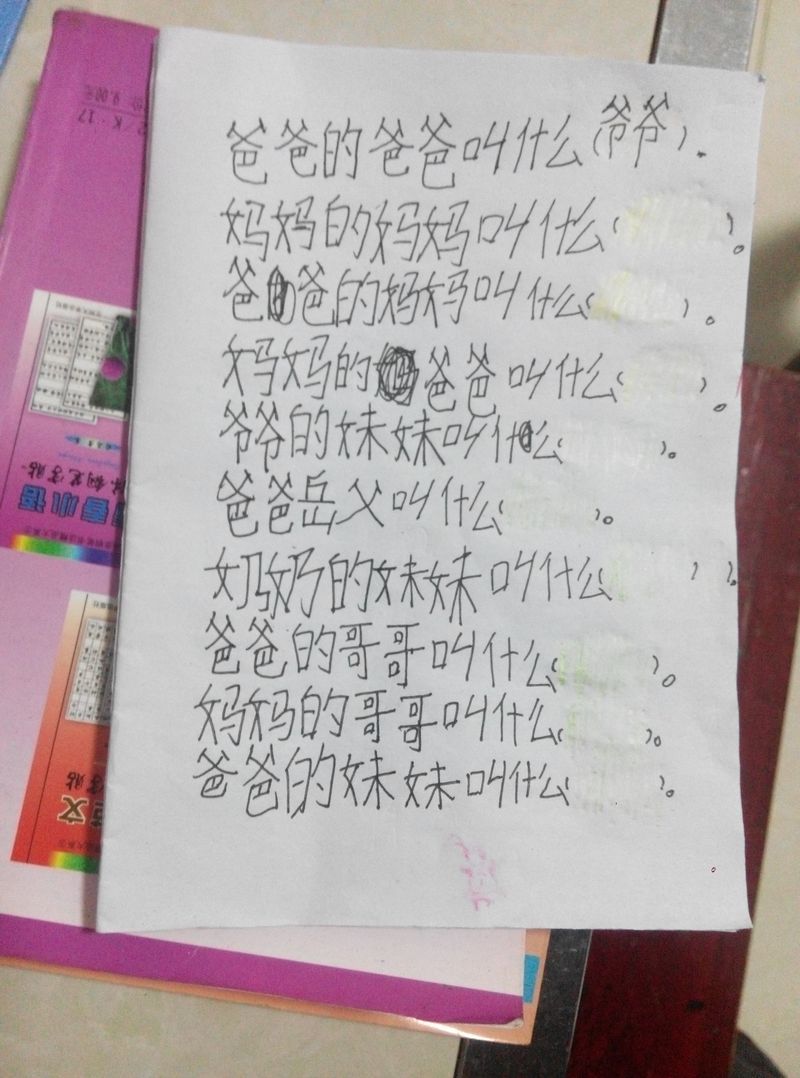 爸爸的爸爸叫什么(爷爷).
妈妈的妈妈叫什么( )。
爸爸的妈妈叫什么( )。
妈妈的爸爸叫什么( )。
爷爷的妹妹叫什么( )。
爸爸岳父叫什么( )。
奶奶的妹妹叫什么( )。
爸爸的哥哥叫什么( )。
妈妈的哥哥叫什么( )。
爸爸的妹妹叫什么( )。
K·17
9.00元